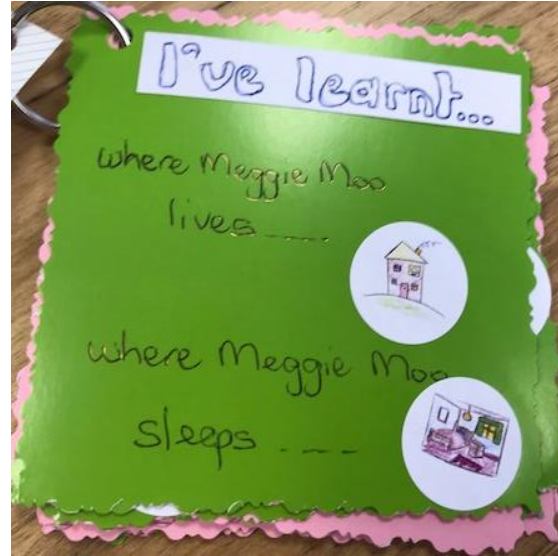 I've learnt...
where Meggie Moo
lives.....
where Meggie Moo
sleeps ----